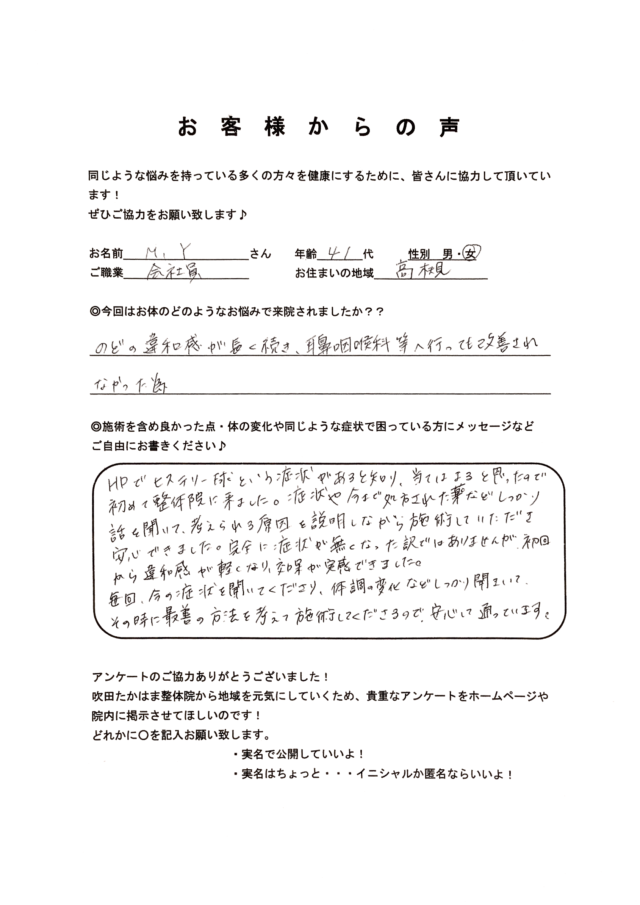 お客様からの声
同じような悩みを持っている多くの方々を健康にするために、皆さんに協力して頂いてい
ます！
ぜひご協力をお願い致します♪
お名前 M.Y さん 年齢 41 代 性別 男・女
ご職業 会社員 お住まいの地域 高槻
◎今回はお体のどのようなお悩みで来院されましたか？？
のどの違和感が長く続き、耳鼻咽喉科等へ行っても改善され
なかった為
◎施術を含め良かった点・体の変化や同じような症状で困っている方にメッセージなど
ご自由にお書きください♪
HPでヒステリー球という症状があると知り、当てはまると思ったので
初めて整体院に来ました。症状や今まで処方された薬などしっかり
話を聞いて、考えられる原因を説明しながら施術していただき
安心できました。完全に症状が無くなった訳ではありませんが、初回
から違和感が軽くなり、効果が実感できました。
毎回、今の症状を聞いてくださり、体調の変化などしっかり聞いて、
その時に最善の方法を考えて施術してくださるので、安心して通っています。
アンケートのご協力ありがとうございました！
吹田たかはま整体院から地域を元気にしていくため、貴重なアンケートをホームページや
院内に掲示させてほしいのです！
どれかに〇を記入お願い致します。
・実名で公開していいよ！
・実名はちょっと・・・イニシャルか匿名ならいいよ！